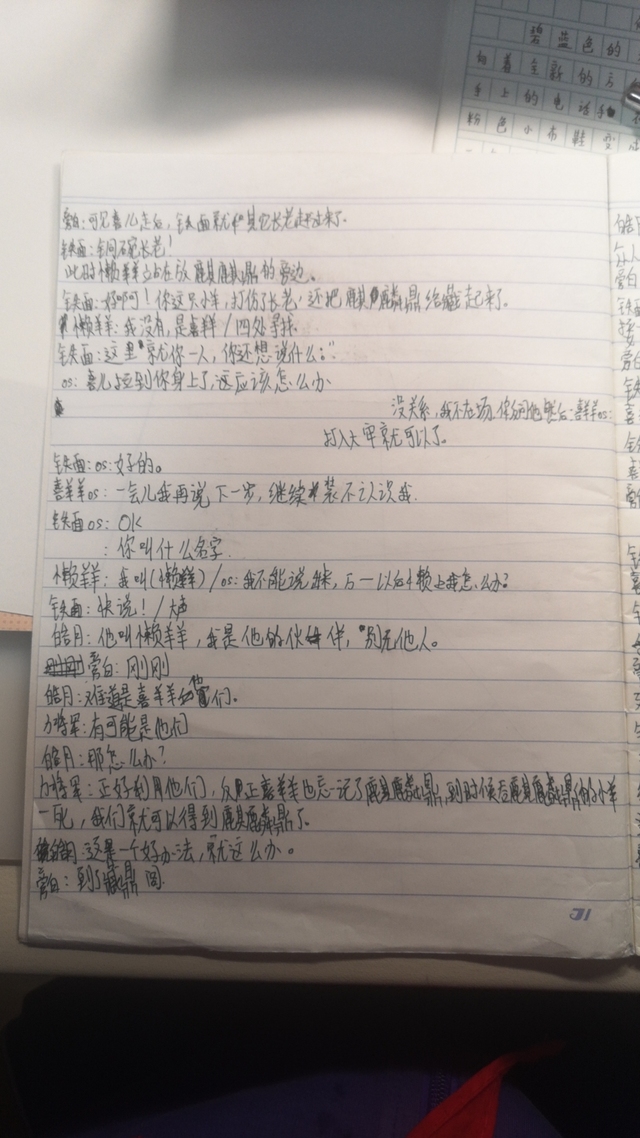 碧蓝色的
向着全新的方
手上的电话手
粉色小布鞋变
旁白:可见喜儿走后,铁面就和其它长老赶过来了。
铁面:钟石碗长老!
此时懒羊羊立站在放麒麟鼎的旁边。
铁面:好啊!你这只小羊,打伤了长老,还把麒麟鼎给藏起来了。
懒羊羊:我没有,是喜羊/四处寻找
铁面:这里就你一人,你还想说什么。
os:喜儿 到你身上了,这应该怎么办
没关系,我不在场,你问他,然后 喜羊羊os:
打入大牢就可以了。
铁面:os:好的。
喜羊羊os:一会儿我再说下一步,继续装不认识我.
铁面os:OK
:你叫什么名字.
懒羊羊:我叫(懒羊羊)/os:我不能说出来,万一以后 赖上我怎么办?
铁面:快说!/大声
皓月:他叫懒羊羊,我是他的伙伴,别无他人。
旁白:刚刚
皓月:难道是喜羊羊他们。
力将军:有可能是他们
皓月:那怎么办?
力将军:正好利用他们,反正喜羊羊也忘记了麒麟鼎,到时候 麒麟鼎 的小羊
一死,我们就可以得到麒麟鼎了。
皓月:这是一个好办法,就这么办。
旁白:到了藏鼎阁
31
皓月
旁白
铁面
接
旁白
铁
喜
铁
喜
旁